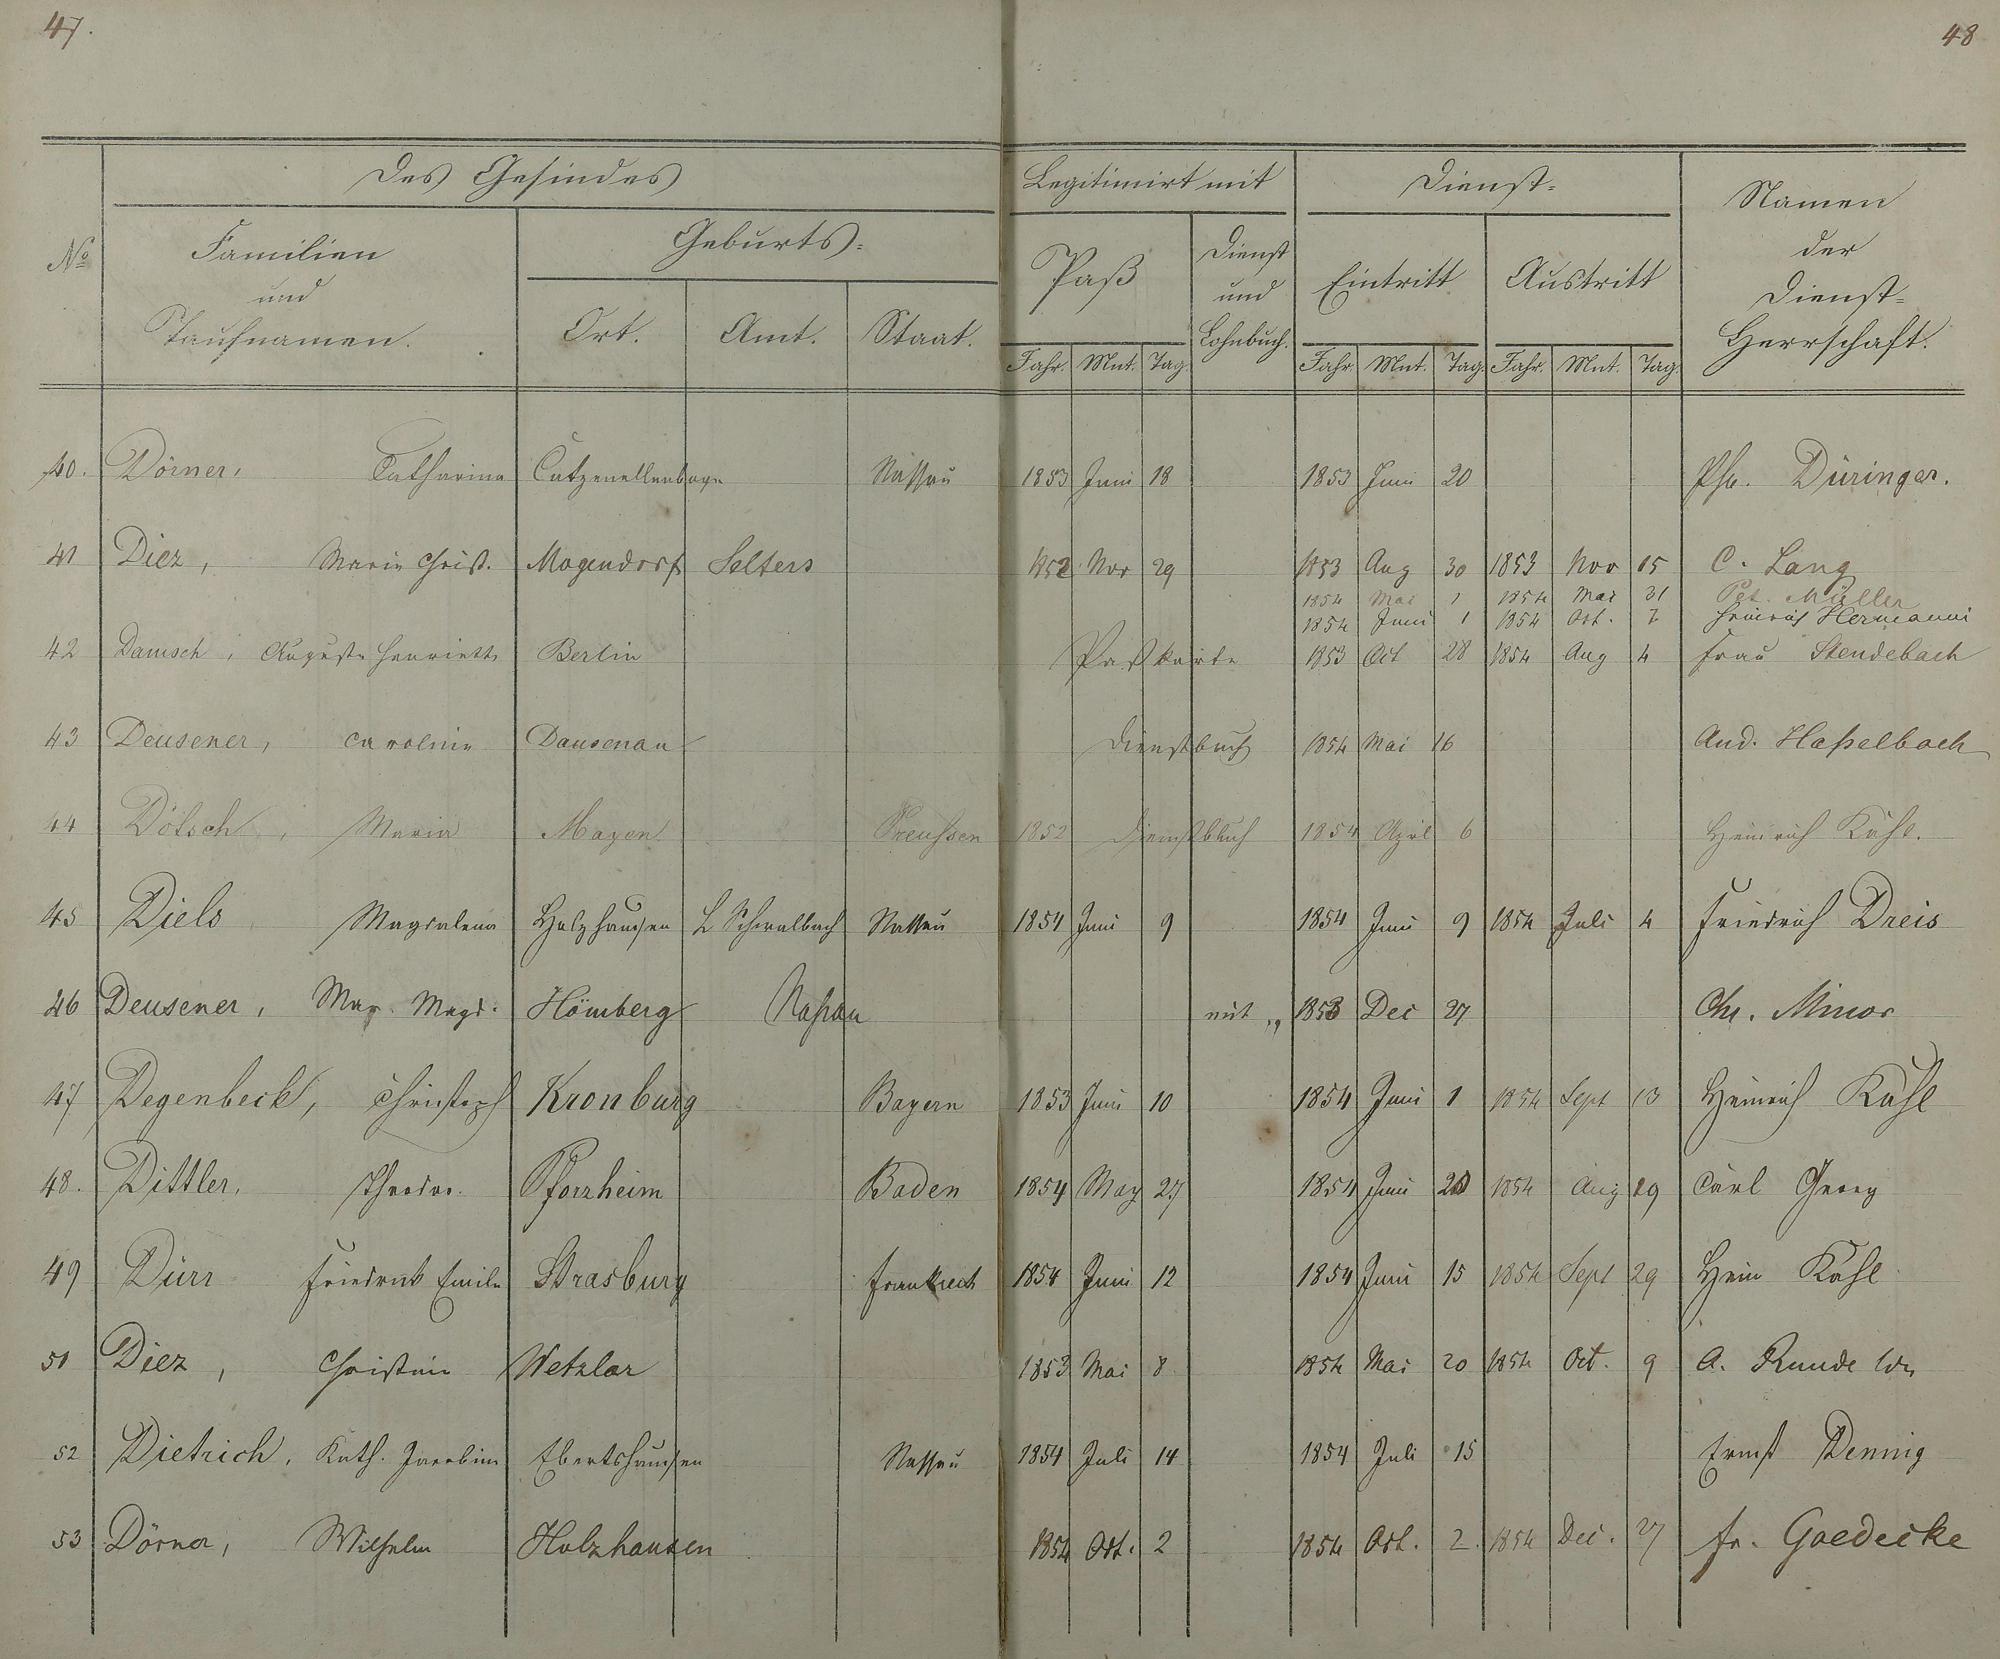 47.
48
Des Gesindes
Legitimirt mit
Dienst=
Namen der Dienst=Herrschaft.
No
Familien und Taufnamen.
Geburts=
Paß
Dienst und Lohnbuch.
Eintritt
Austritt
Ort. Amt. Staat.
Jahr. Mnt. Tag. Jahr Mnt. Tag. Jahr. Mnt. Tag.
40. Dörner, Catharina Catzenellenbogn Nassau 1853 Juni 18 1853 Juni 20 Ph. Düringer.
41 Diez, Marie Christ. Mogendorf Selters 1852 Nov 29 1853 Aug 30 1853 Nov 15 C. Lang
1854 Mai 1 1854 Mai 31 Pet. Müller
1854 Juni 1 1854 Oct. 7 Heinrich Hermanni
42 Damsch, Auguste Henriette Berlin Paßkarte 1853 Oct 28 1854 Aug 4 Frau Stendebach
43 Deusener, Caroline Dausenau Dienstbuch 1854 Mai 16 And. Haßelbach
44 Dötsch, Maria Mayen Preußen 1852 Dienstbuch 1854 April 6 Heinrich Kühl.
45 Diels Magdalena Holzhausen L Schwalbach Nassau 1854 Juni 9 1854 Juni 9 1854 Juli 4 Friedrich Dreis
46 Deusener, Mar. Magd. Hömberg Naßau mit „ 1853 Dec 27 Chr. Minor
47 Degenbeck, Christoph Kronburg Bayern 1853 Juni 10 1854 Juni 1 1854 Sept 13 Heinrich Kühl
48. Dittler, Theodor. Pforzheim Baden 1854 May 27 1854 Juni 1854 Aug 29 Carl Georg
49 Dürr Friedrick Emile Strasburg Frankreich 1854 Juni 12 1854 Juni 15 1854 Sept 29 Hein Kühl
51 Diez, Christine Wetzlar 1853 Mai 8 1854 Mai 20 1854 Oct. 9 A. Runde
52 Dietrich, Kath. Jacobine Ebertshausen Nassau 1854 Juli 14 1854 Juli 15 Ernst Dennig
53 Dörner, Wilhelm Holzhausen 1854 Oct. 2 1854 Oct. 2 1854 Dec. 27 Fr. Goedecke